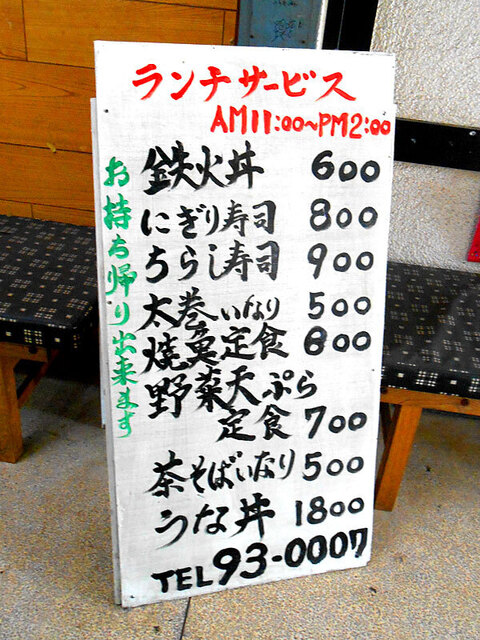 ランチサービス
AM11:00~PM2:00
お持ち帰り出来ます
鉄火丼 600
にぎり寿司 800
ちらし寿司 900
太巻いなり 500
焼魚定食 800
野菜天ぷら
定食 700
茶そばいなり 500
うな丼 1800
TEL 93-0007